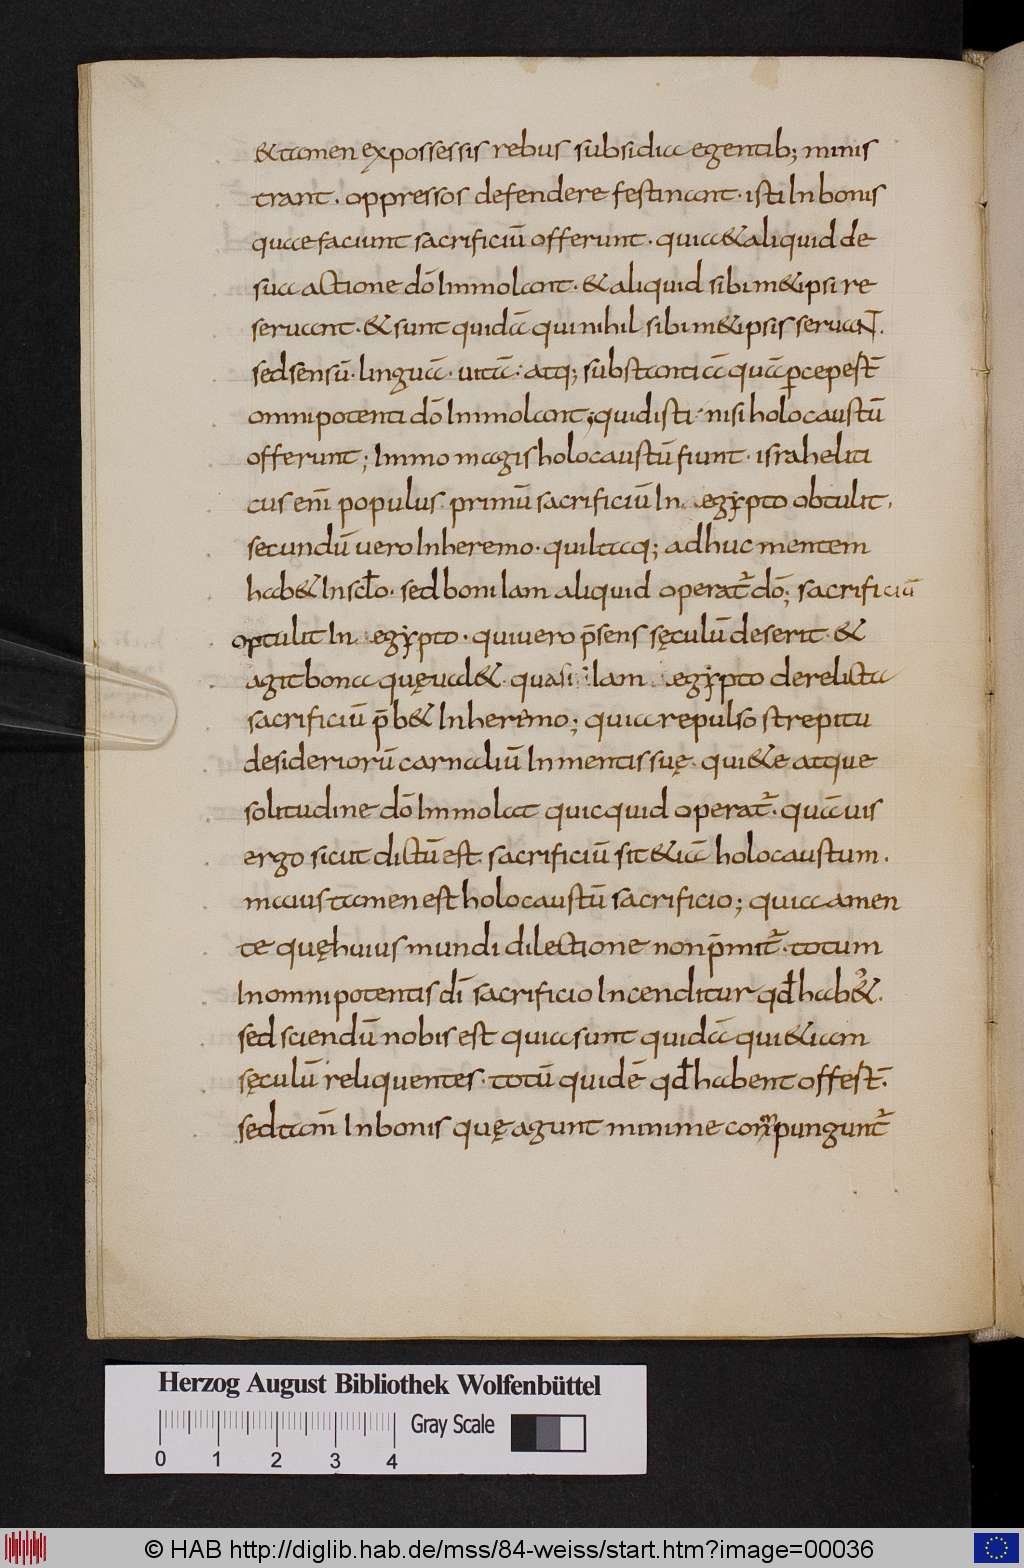 &tamen expossessis rebus subsidia egentib; minis
trant. oppressos defendere festinant. isti In bonis
quae faciunt sacrificiū offerunt. quia & aliquid de
sua actione dō Immolant. & aliquid sibi m&ipsi re
seruant. & sunt quidā qui nihil sibi m&ipsis seruaNT.
sed sensū. linguā. uitā. atq; substantiā quā p̄cep̄est̄
omnipotenti dō Immolant; quid isti nisi holocaustū
offerunt; Immo magis holocaustū fiunt. israheliti
cus enī populus primū sacrificiū In aegypto obtulit.
secundū uero In heremo. qui Itaq; adhuc mentem
hab& In scl̄o. sed boni Iam aliquid operat̄ dō; sacrificiū
optulit In aegypto. qui uero p̄sens sęculū deserit. &
agit bona quę ual&. quasi Iam aegypto derelicta
sacrificiū p̄b& In heremo; quia repulso strepitu
desideriorū carnaliū In mentis suę. qui&e atque
solitudine dō Immolat quicquid operat̄. quāuis
ergo sicut dictū est. sacrificiū sit &iā holocaustum.
maius tamen est holocaustū sacrificio; quia amen
te quę huius mundi dilectione non p̄mit̄. totum
In omnipotentis dī sacrificio Incenditur qd̄ hab&.
sed sciendū nobis est quia sunt quidā qui &iam
sęculū reliquentes. totū quidē qd̄ habent offest̄.
sed tam̄ In bonis quę agunt minime compungunt̄
Herzog August Bibliothek Wolfenbüttel
Gray Scale
0 1 2 3 4
© HAB http://diglib.hab.de/mss/84-weiss/start.htm?image=00036